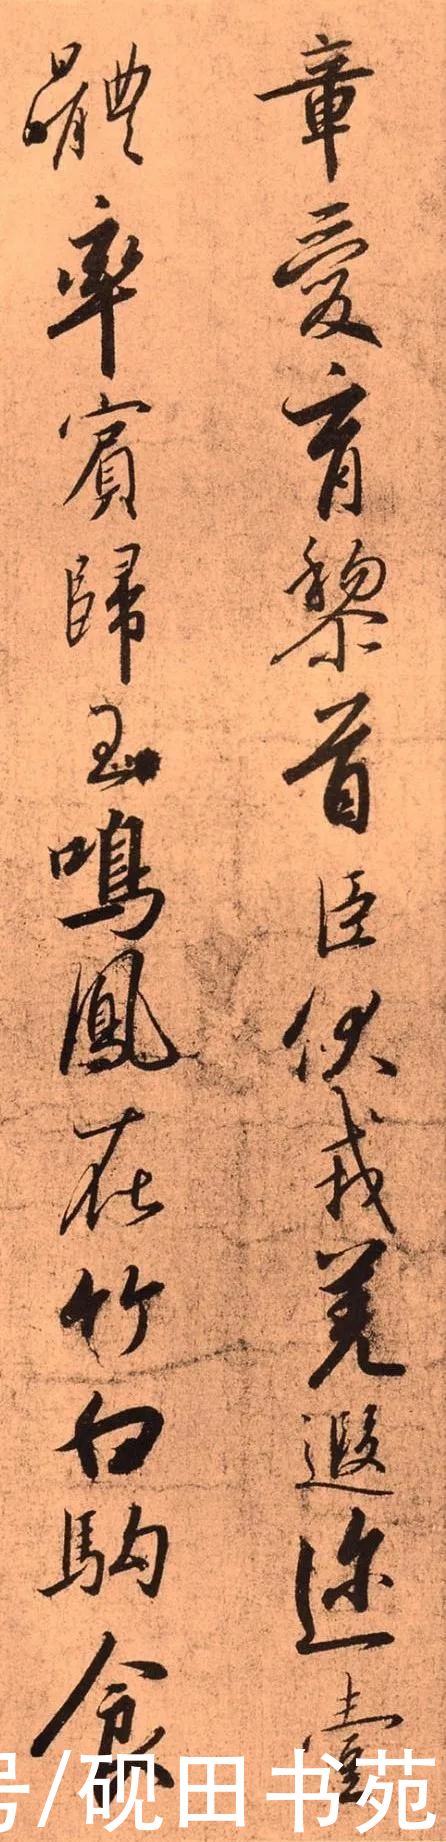 章愛育黎首臣伏戎羌遐迩壹
體率賓歸王鳴鳳在竹白駒食
号/砚田书苑